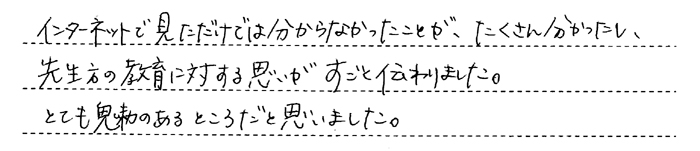 インターネットで見ただけでは分からなかったことが、たくさん分かったし、
先生方の教育に対する思いがすごと伝わりました。
とても魅力のあるところだと思いました。